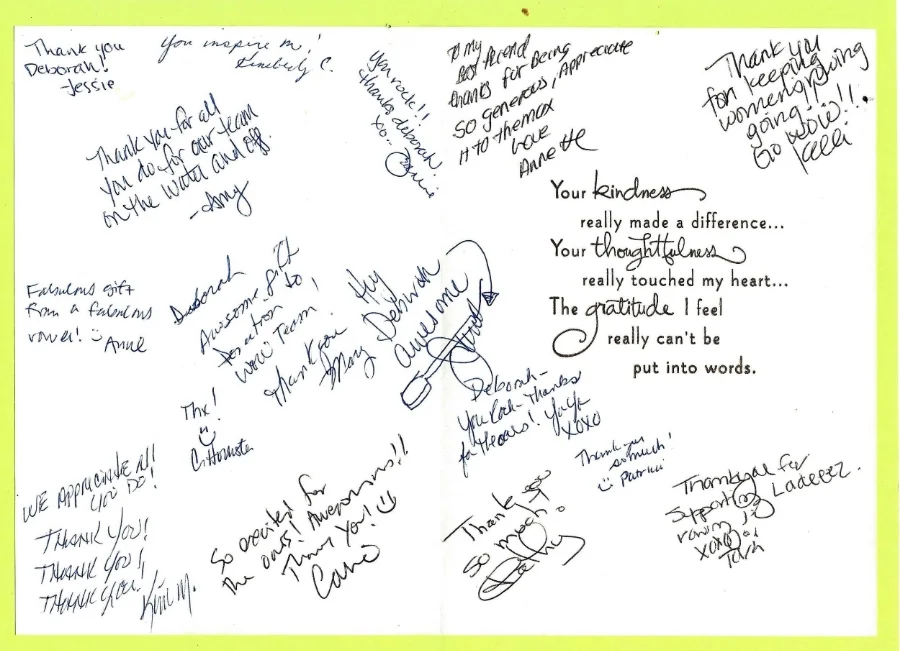 Thank you
Deborah!
-Jessie
You inspire me!
C.
You rock!!
Thanks deborah.
xo...
To my
Best friend
thanks for being
so generous, Appreciate
it to the max
Love
Annette
Thank you
for keeping
women rowing
going...!!
Go WOW!!
Kelli
Thank you for all
you do for our team
on the water and off.
-Amy
Your kindness
really made a difference...
Your thoughtfulness
really touched my heart...
The gratitude I feel
really can't be
put into words.
Fabulous gift
from a fabulous
rower!
Anne
Deborah
Awesome gift
Donation to
WOW Team!
Thank you
Mary
Hey
Deborah
awesome
Thx!
Deborah-
You Rock-Thanks
for the oars! YaYa
XOXO
Thank you
so much!
Patrici
WE APPRECIATE All
YOU DO!
THANK YOU!
THANK YOU!
THANK YOU!
Kim M.
So excited for
the oars! Awesomeness!!
Thank You!
Thank you
so much!
Kathy
Thank you for
supporting
rowing
xoxo
Tara